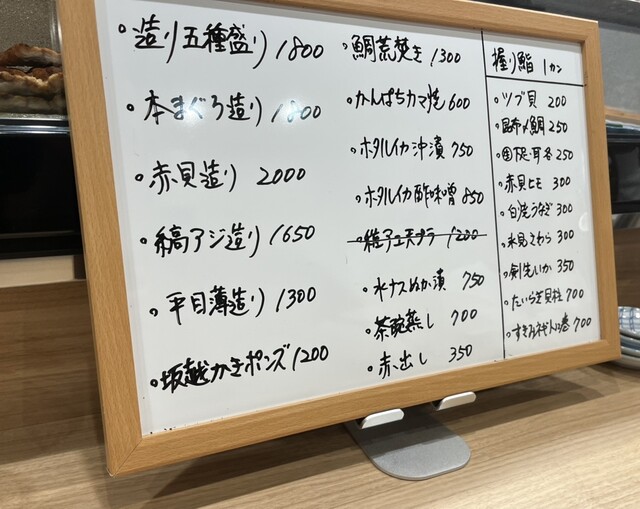 ・造り五種盛り 1800
・本まぐろ造り 1800
・赤貝造り 2000
・縞アジ造り 1650
・平目薄造り 1300
・坂越かきポンズ 1200
・鯛荒焚き 1300
・かんぱちカマ焼 600
・ホタルイカ沖漬 750
・ホタルイカ酢味噌 850
天プラ 1200
・水ナスぬか漬 750
・茶碗蒸し 700
・赤出し 350
握り鮨 1カン
・ツブ貝 200
・昆布〆鯛 250
・耳各 250
・赤貝ヒモ 300
・白焼うなぎ 300
・氷見さわら 300
・剣先いか 350
・たいらぎ貝柱 700
・すきみネギトロ巻 700